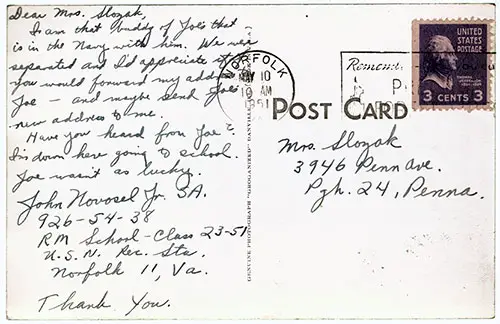 Dear Mrs. Slozak,
I am that buddy of Joe's that
is in the Navy with him. We were
separated and I'd appreciate it
you would forward my address
Joe — and maybe send Joe's
new address to me.
Have you heard from Joe?
I'm down here going to school.
Joe wasn't as lucky.
John Novosel Jr. SA.
926-54-38
RM School-Class 23-51
U.S.N. Rec. Sta.
Norfolk 11, Va.
Thank You.
GENUINE PHOTOGRAPH
NORFOLK
10
10 AM
1951
Remem
UNITED STATES
POSTAGE
3 CENTS 3
POST CARD
Mrs. Slozak
3946 Penn Ave.
Pgh. 24, Penna.